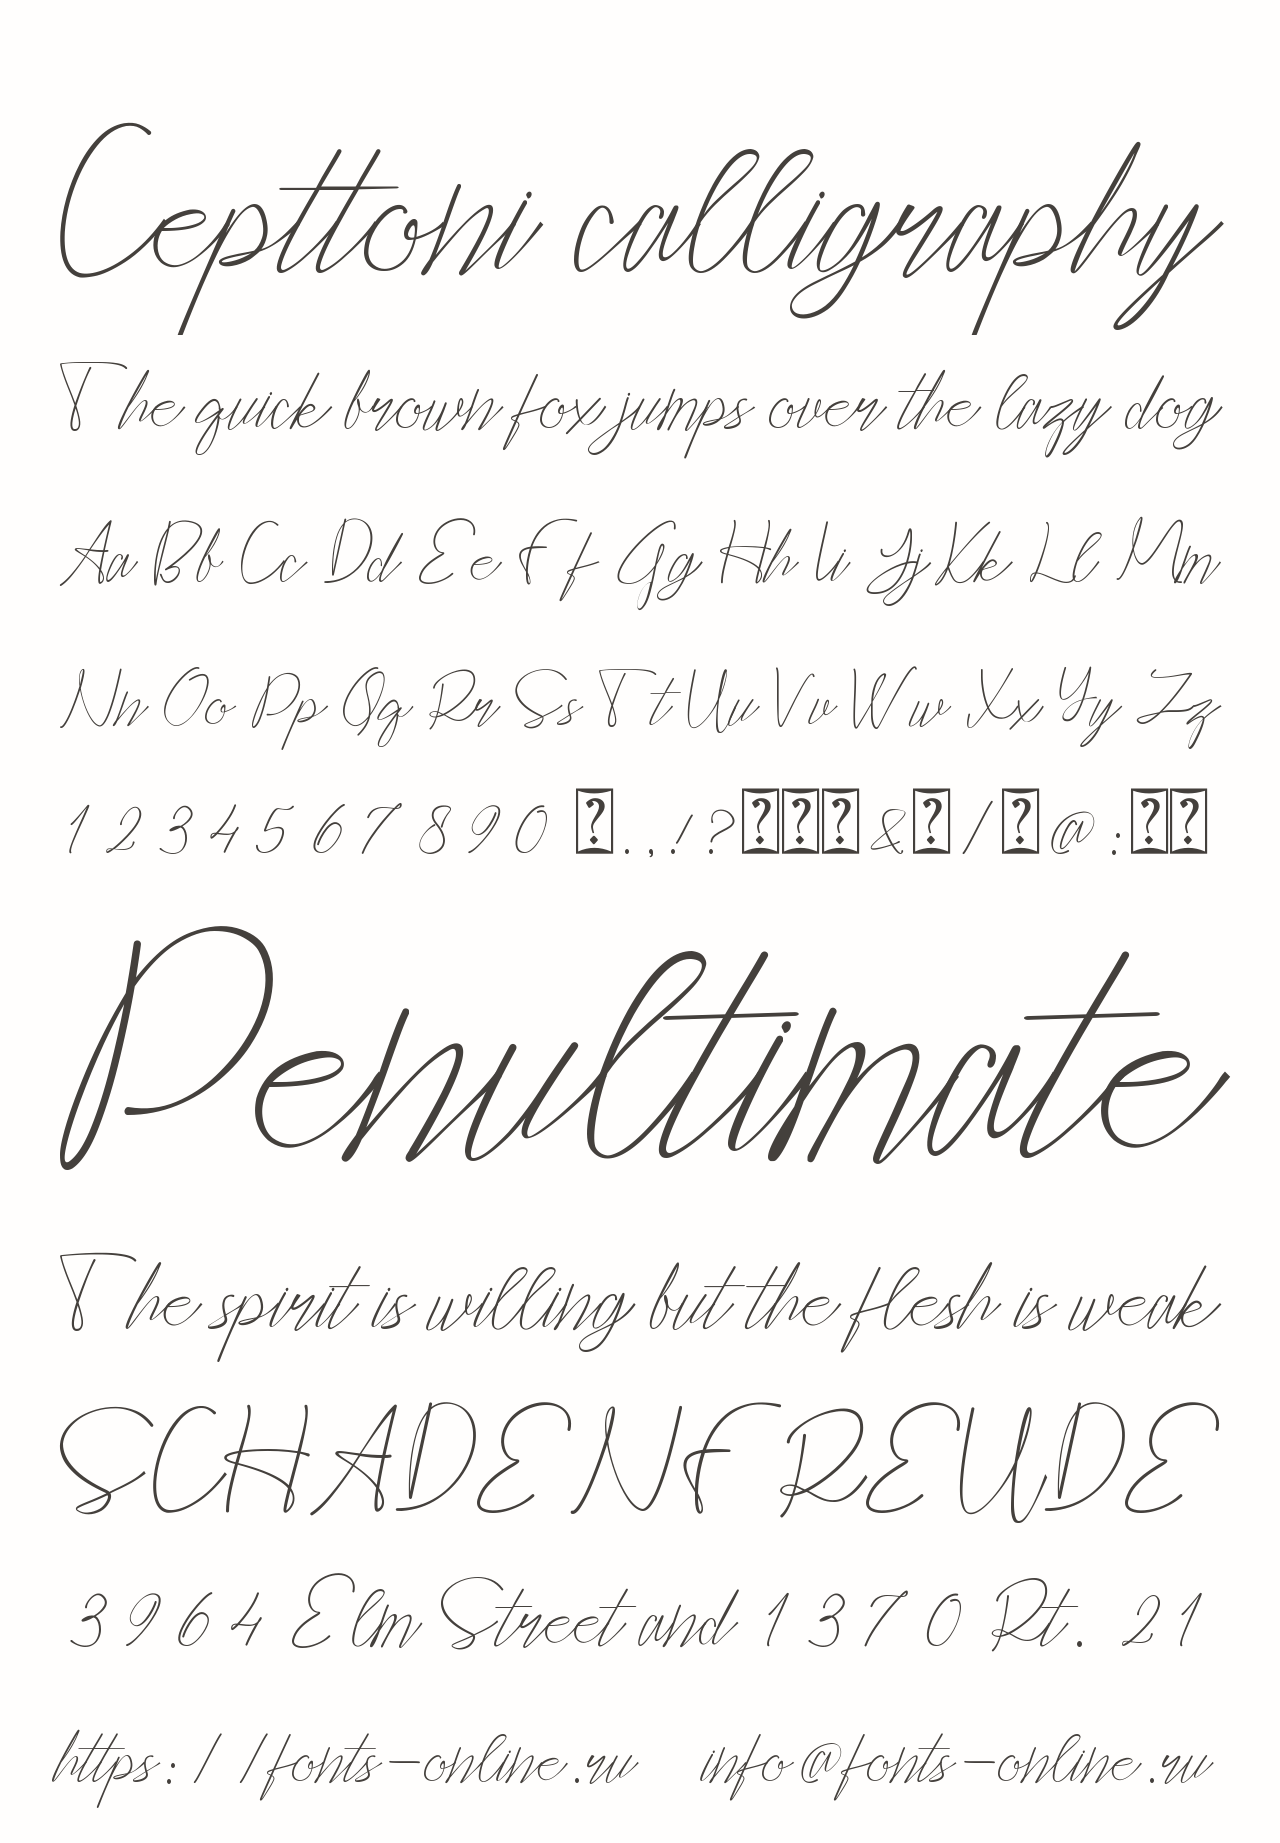 Cepttoni calligraphy
The quick brown fox jumps over the lazy dog
Aa Bb Cc Dd Ee Ff Gg Hh Ii Jj Kk Ll Mm
Nn Oo Pp Qq Rr Ss Tt Uu Vv Ww Xx Yy Zz
1 2 3 4 5 6 7 8 9 0 �.,!?���&�/�@:��
Penultimate
The spirit is willing but the flesh is weak
SCHADENFREUDE
3964 Elm Street and 1370 Rt. 21
https://fonts-online.ru info@fonts-online.ru